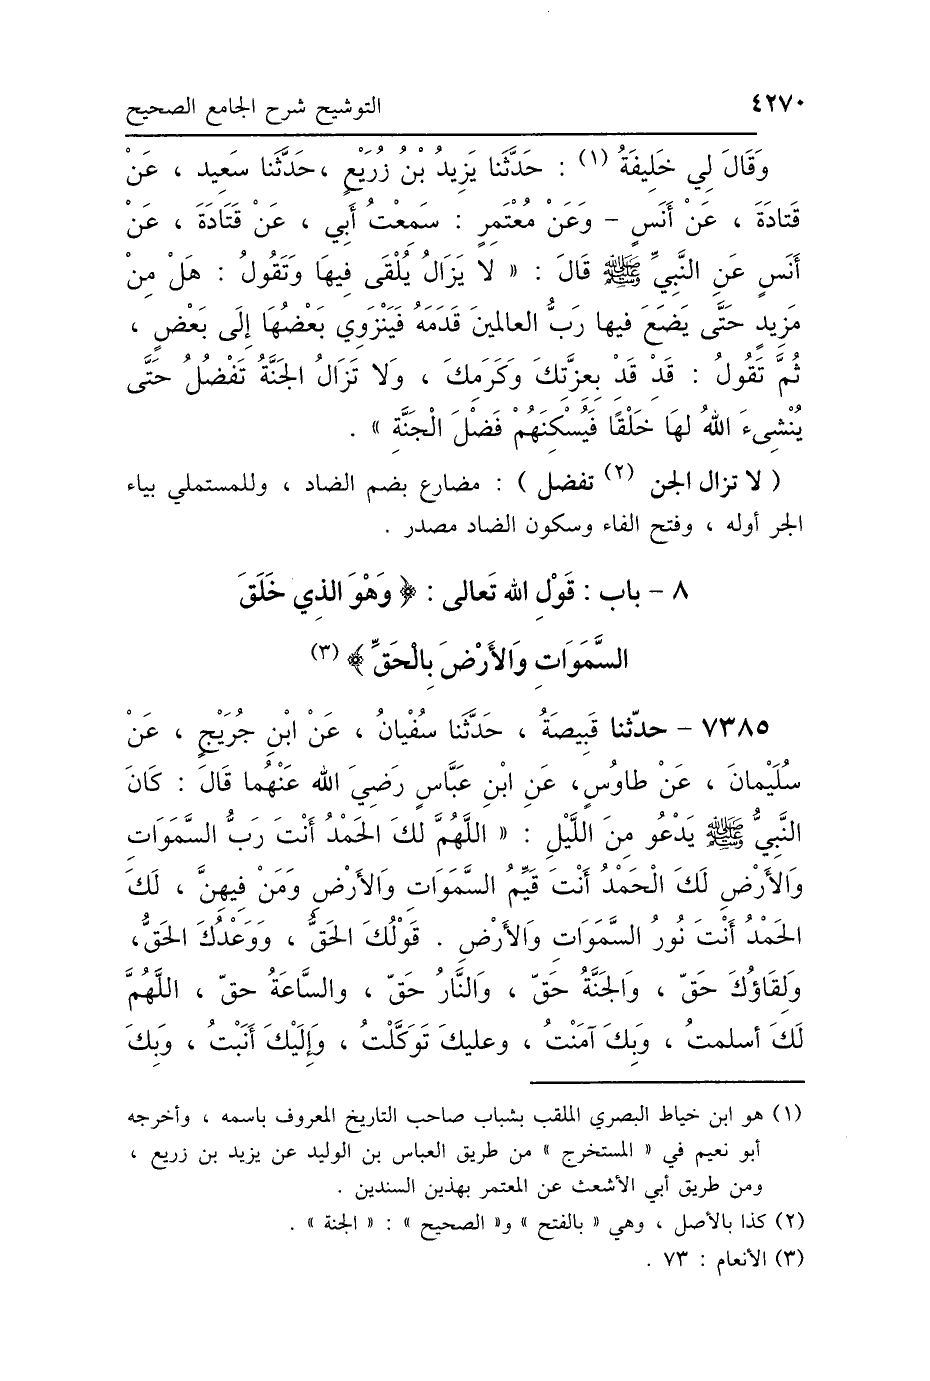 ٤٢٧٠ التوشيح شرح الجامع الصحيح
وَقَالَ لِي خَلِيفَةُ (١) : حَدَّثَنا يَزِيدُ بْنُ زُرَيْعٍ ، حَدَّثَنا سَعِيد ، عَنْ
قَتادَةَ ، عَنْ أَنَسٍ - وَعَنْ مُعْتَمِرٍ : سَمعْتُ أَبي ، عَنْ قَتَادَةَ ، عَنْ
أَنَسٍ عَنِ النَّبِيِّ ﷺ قَالَ : « لا يَزَالُ يُلْقَى فِيهَا وَتَقُولُ : هَلْ مِنْ
مَزِيدٍ حَتَّى يَضَعَ فيها رَبُّ العالمينَ قَدَمَهُ فَيَنْزَوِي بَعْضُهَا إِلَى بَعْضٍ ،
ثُمَّ تَقُولُ : قَدْ قَدْ بِعِزَّتِكَ وَكَرَمِكَ ، وَلا تَزَالُ الجَنَّةُ تَفْضُلُ حَتَّى
يُنْشِىءَ اللهُ لهَا خَلْقًا فَيُسْكِنَهُمْ فَضْلَ الْجَنَّةِ » .
( لا تزال الجن (٢) تفضل ) : مضارع بضم الضاد ، وللمستملي بياء
الجر أوله ، وفتح الفاء وسكون الضاد مصدر .
٨ - باب : قَوْلِ الله تَعالى : ﴿ وَهْوَ الذي خَلَقَ
السَّمَوَاتِ وَالأَرْضَ بِالْحَقِّ ﴾ (٣)
٧٣٨٥ - حدّثنا قَبِيصَةُ ، حَدَّثَنا سُفْيَانُ ، عَنْ ابْنِ جُرَيْجٍ ، عَنْ
سُلَيْمانَ ، عَنْ طاوُسٍ، عَنِ ابْنِ عَبَّاسٍ رَضِيَ الله عَنْهُما قَالَ : كَانَ
النَّبِيُّ ﷺ يَدْعُو مِنَ اللَّيْلِ : « اللَّهُمَّ لكَ الحَمْدُ أَنْتَ رَبُّ السَّمَوَاتِ
وَالأَرْضِ لَكَ الْحَمْدُ أَنْتَ قَيِّمُ السَّمَوَاتِ وَالأَرْضِ وَمَنْ فِيهِنَّ ، لَكَ
الحَمْدُ أَنْتَ نُورُ السَّمَوَاتِ وَالأَرْضِ . قَوْلُكَ الحَقُّ ، وَوَعْدُكَ الحَقُّ،
وَلِقَاؤُكَ حَقّ ، وَالجَنَّةُ حَقّ ، وَالنَّارُ حَقّ ، والسَّاعَةُ حقّ ، اللَّهُمَّ
لَكَ أسلمتُ ، وَبِكَ آمَنْتُ ، وعليكَ تَوَكَّلْتُ ، وَإِلَيْكَ أَنَبْتُ ، وَبِكَ
(١) هو ابن خياط البصري الملقب بشباب صاحب التاريخ المعروف باسمه ، وأخرجه
أبو نعيم في « المستخرج » من طريق العباس بن الوليد عن يزيد بن زريع ،
ومن طريق أبي الأشعث عن المعتمر بهذين السندين .
(٢) كذا بالأصل ، وهي « بالفتح » و« الصحيح » : « الجنة » .
(٣) الأنعام : ٧٣ .